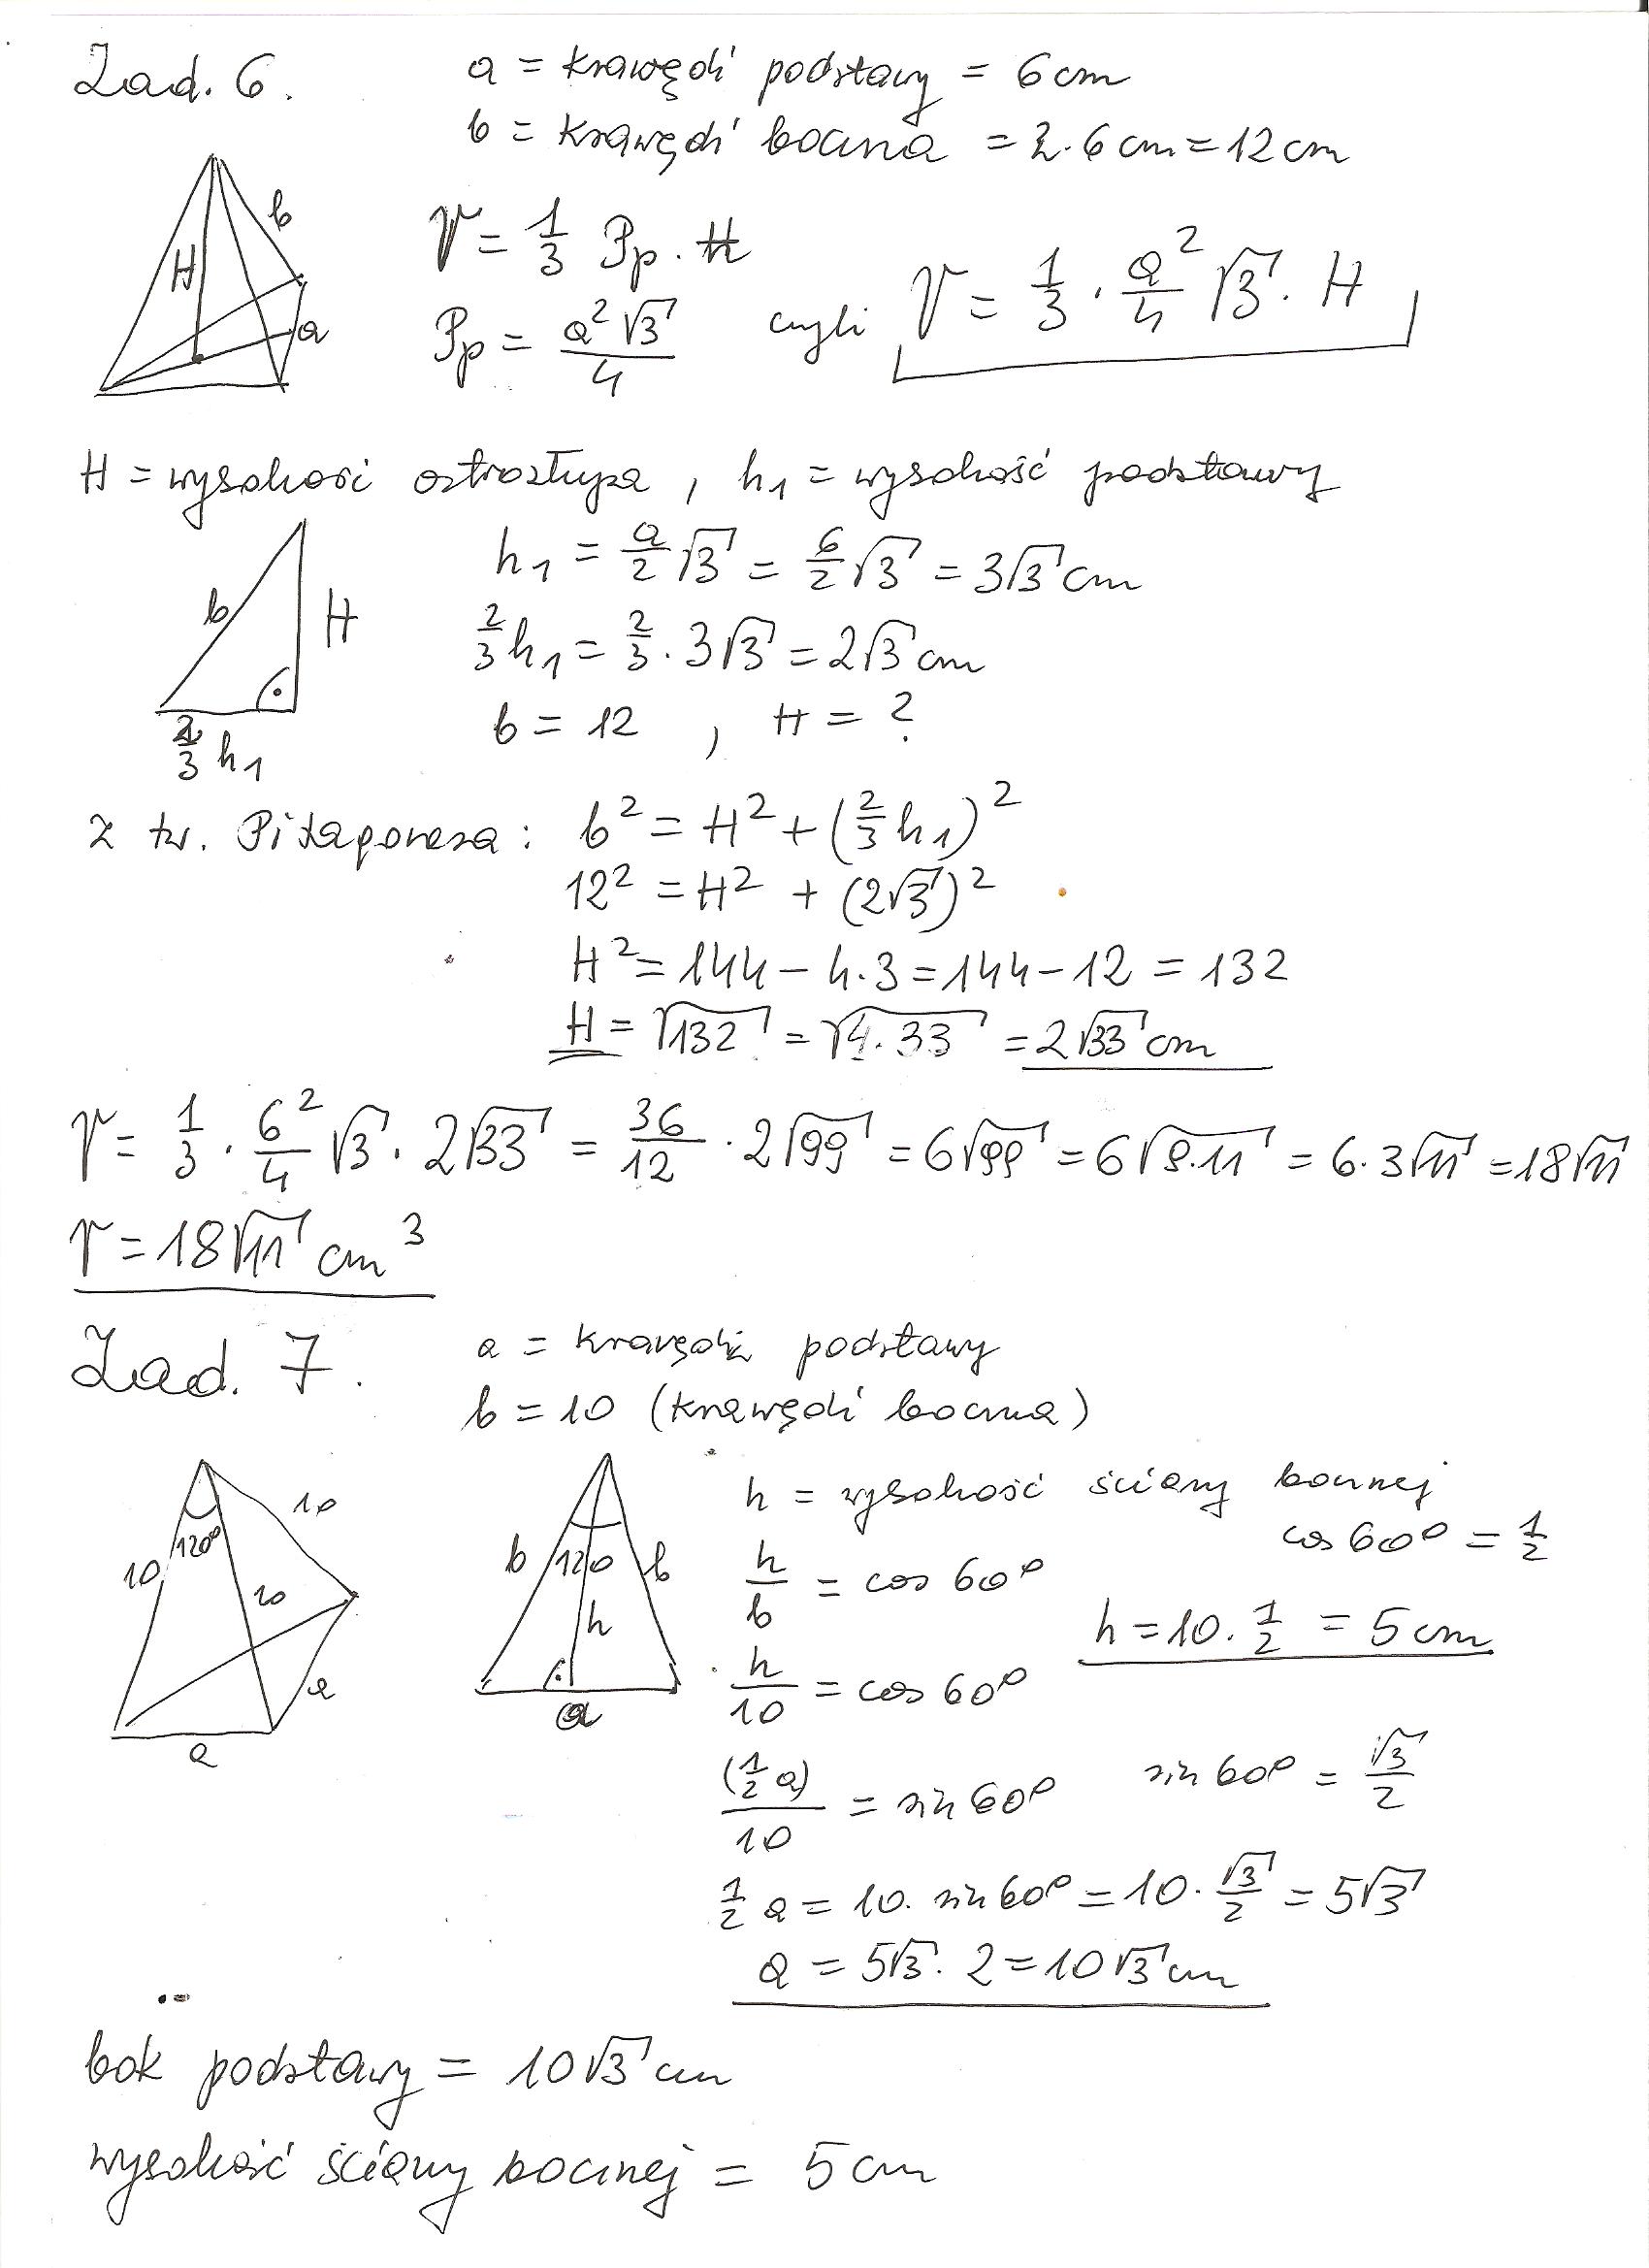 Zad. 6.
a = krawędź podstawy = 6 cm
b = krawędź boczna = 2·6 cm = 12 cm
b
H
a
V = 1/3 Pp · H
Pp = a²√3/4 czyli V = 1/3 · a²/4 √3 · H
H = wysokość ostrosłupa, h₁ = wysokość podstawy
b
H
2/3 h₁
h₁ = a/2 √3 = 6/2 √3 = 3√3 cm
2/3 h₁ = 2/3 · 3√3 = 2√3 cm
b = 12 , H = ?
z tw. Pitagorasa: b² = H² + (2/3 h₁)²
12² = H² + (2√3)²
H² = 144 – 4·3 = 144 – 12 = 132
H = √132 = √4·33 = 2√33 cm
V = 1/3 · 6²/4 √3 · 2√33 = 36/12 · 2√99 = 6√99 = 6√9·11 = 6·3√11 = 18√11
V = 18√11 cm³
Zad. 7.
a = krawędź podstawy
b = 10 (krawędź boczna)
10
120°
10
10
a
a
b
120
b
h
a
h = wysokość ściany bocznej
cos 60° = 1/2
h/b = cos 60°
h = 10 · 1/2 = 5 cm
h/10 = cos 60°
(1/2 a)/10 = sin 60° sin 60° = √3/2
1/2 a = 10 · sin 60° = 10 · √3/2 = 5√3
a = 5√3 · 2 = 10√3 cm
bok podstawy = 10√3 cm
wysokość ściany bocznej = 5 cm